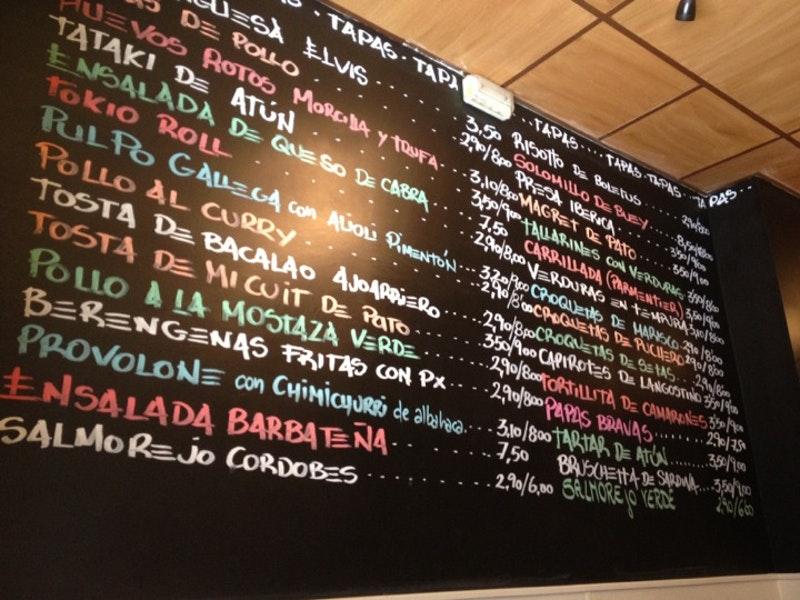 TAPAS · TAPAS · TAPA
TAPAS · TAPAS · TAPAS · TAPAS ...
GUESA ELVIS 3,50
DE POLLO 2,90/8,00
HUEVOS ROTOS MORCILLA Y TRUFA 3,10/8,00
TATAKI DE ATÚN 3,50/9,00
ENSALADA DE QUESO DE CABRA 7,50
TOKIO ROLL 2,90/8,00
PULPO GALLEGA con ALIOLI PIMENTÓN 3,20/9,00
POLLO AL CURRY 2,90/8,00
TOSTA DE BACALAO AJOARRIERO 2,90/8,00
TOSTA DE MICUIT DE PATO 3,50/9,00
POLLO A LA MOSTAZA VERDE 2,90/8,00
BERENGENAS FRITAS CON PX 2,90/8,00
PROVOLONE con CHIMICHURRI de albahaca 3,10/8,00
ENSALADA BARBATEÑA 7,50
SALMOREJO CORDOBES 2,90/6,00
RISOTTO DE BOLETUS 2,90/8,00
SOLOMILLO DE BUEY
PRESA IBERICA 3,50/9,00
MAGRET DE PATO 3,50/9,00
TALLARINES CON VERDURAS 3,50/8,00
CARRILLADA (PARMENTIER) 3,50/9,00
VERDURAS EN TEMPURA
CROQUETAS DE MARISCO 2,90/8,00
CROQUETAS DE PUCHERO 2,90/8,00
CROQUETAS DE SETAS 2,90/8,00
CAPIROTES DE LANGOSTINO 3,50/9,00
TORTILLITA DE CAMARONES 3,50/9,00
PAPAS BRAVAS 2,90/7,50
TARTAR DE ATÚN 3,50/9,00
BRUSCHETTA DE SARDINA 3,50/9,00
SALMOREJO VERDE 2,90/6,00